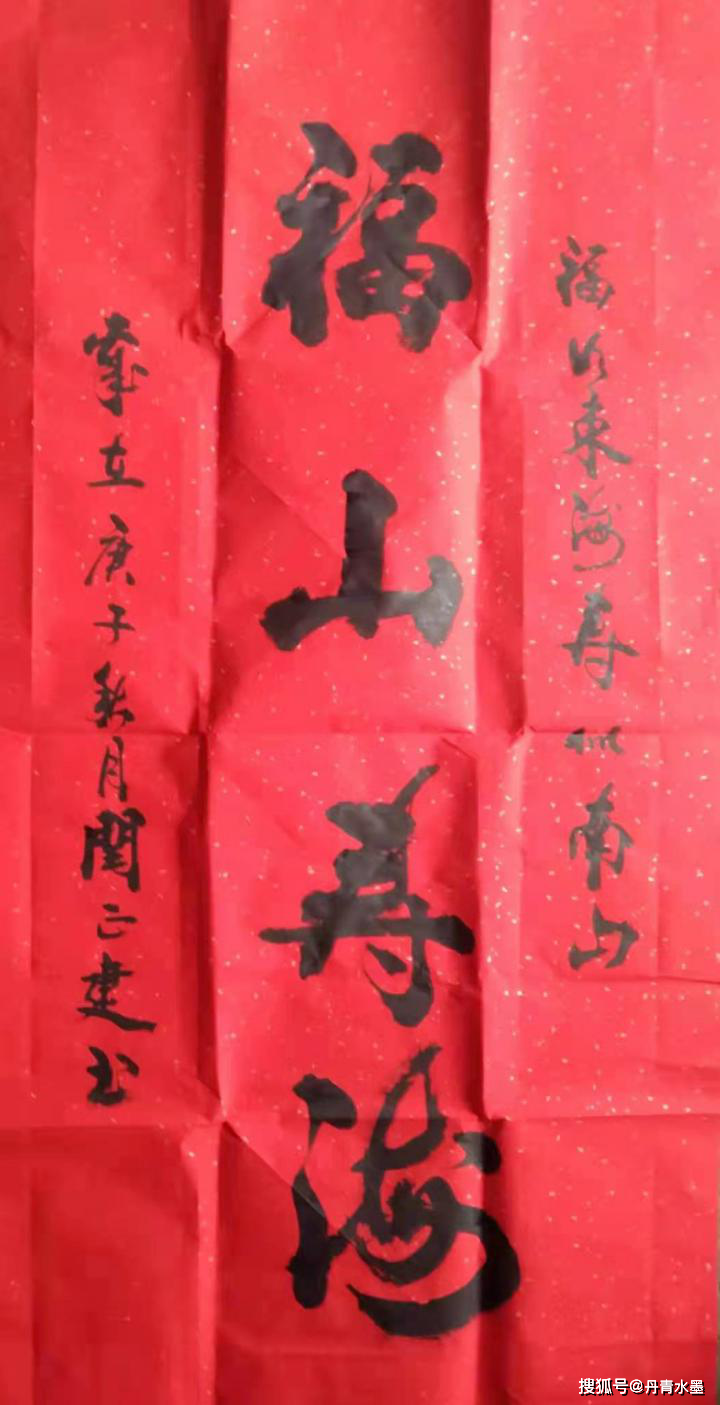 福如東海寿比南山
福山寿海
歲在庚子秋月閆正建书
搜狐号@丹青水墨